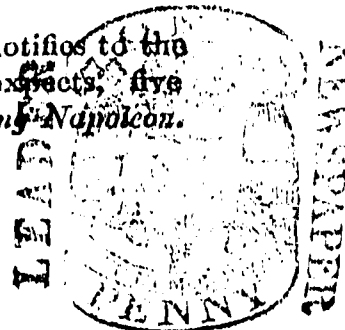 notifies to the
expects, five
Napoleon.
LEADER
NEWSPAPER
PENNY